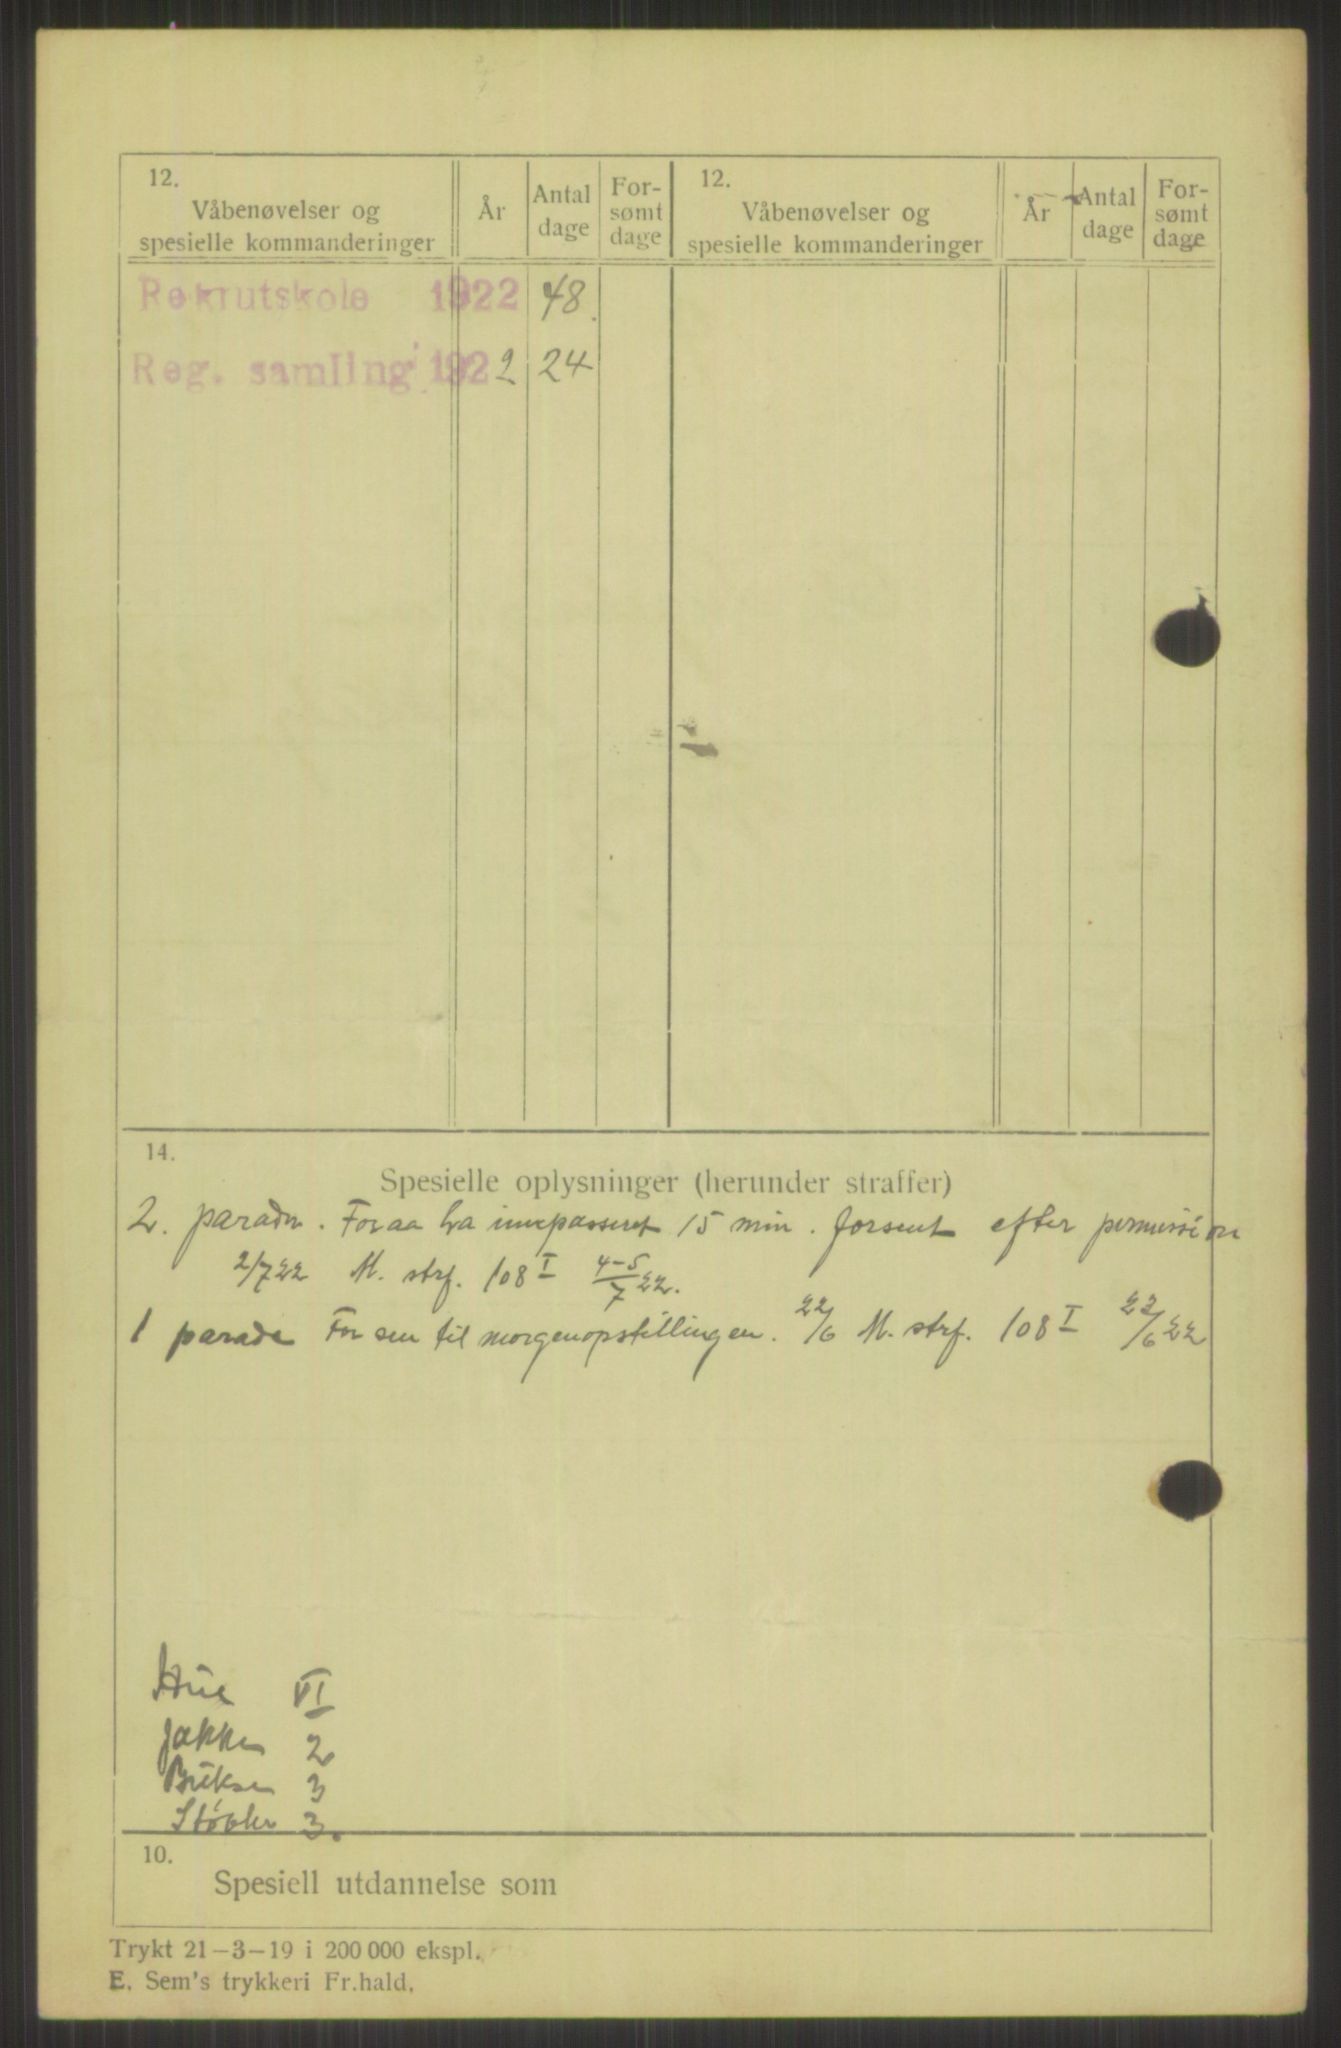 12.
Våbenøvelser og
spesielle kommanderinger
År
Antal
dage
For-
sømt
dage
12.
Våbenøvelser og
spesielle kommanderinger
År
Antal
dage
For-
sømt
dage
Rekrutskole 1922 48.
Reg. samling 1922 24
14.
Spesielle oplysninger (herunder straffer)
2. parader. For aa ha innpasseret 15 min. forsent efter permission
2/7 22 M. strf. 108 I 4-5/7 22.
1 parade For sen til morgenopstillingen. 22/6 M. strf. 108 I 22/6 22
Hue VI
Jakke 2
Bukse 3
Støvler 3.
10.
Spesiell utdannelse som
Trykt 21-3-19 i 200 000 ekspl.
E. Sem's trykkeri Fr.hald.